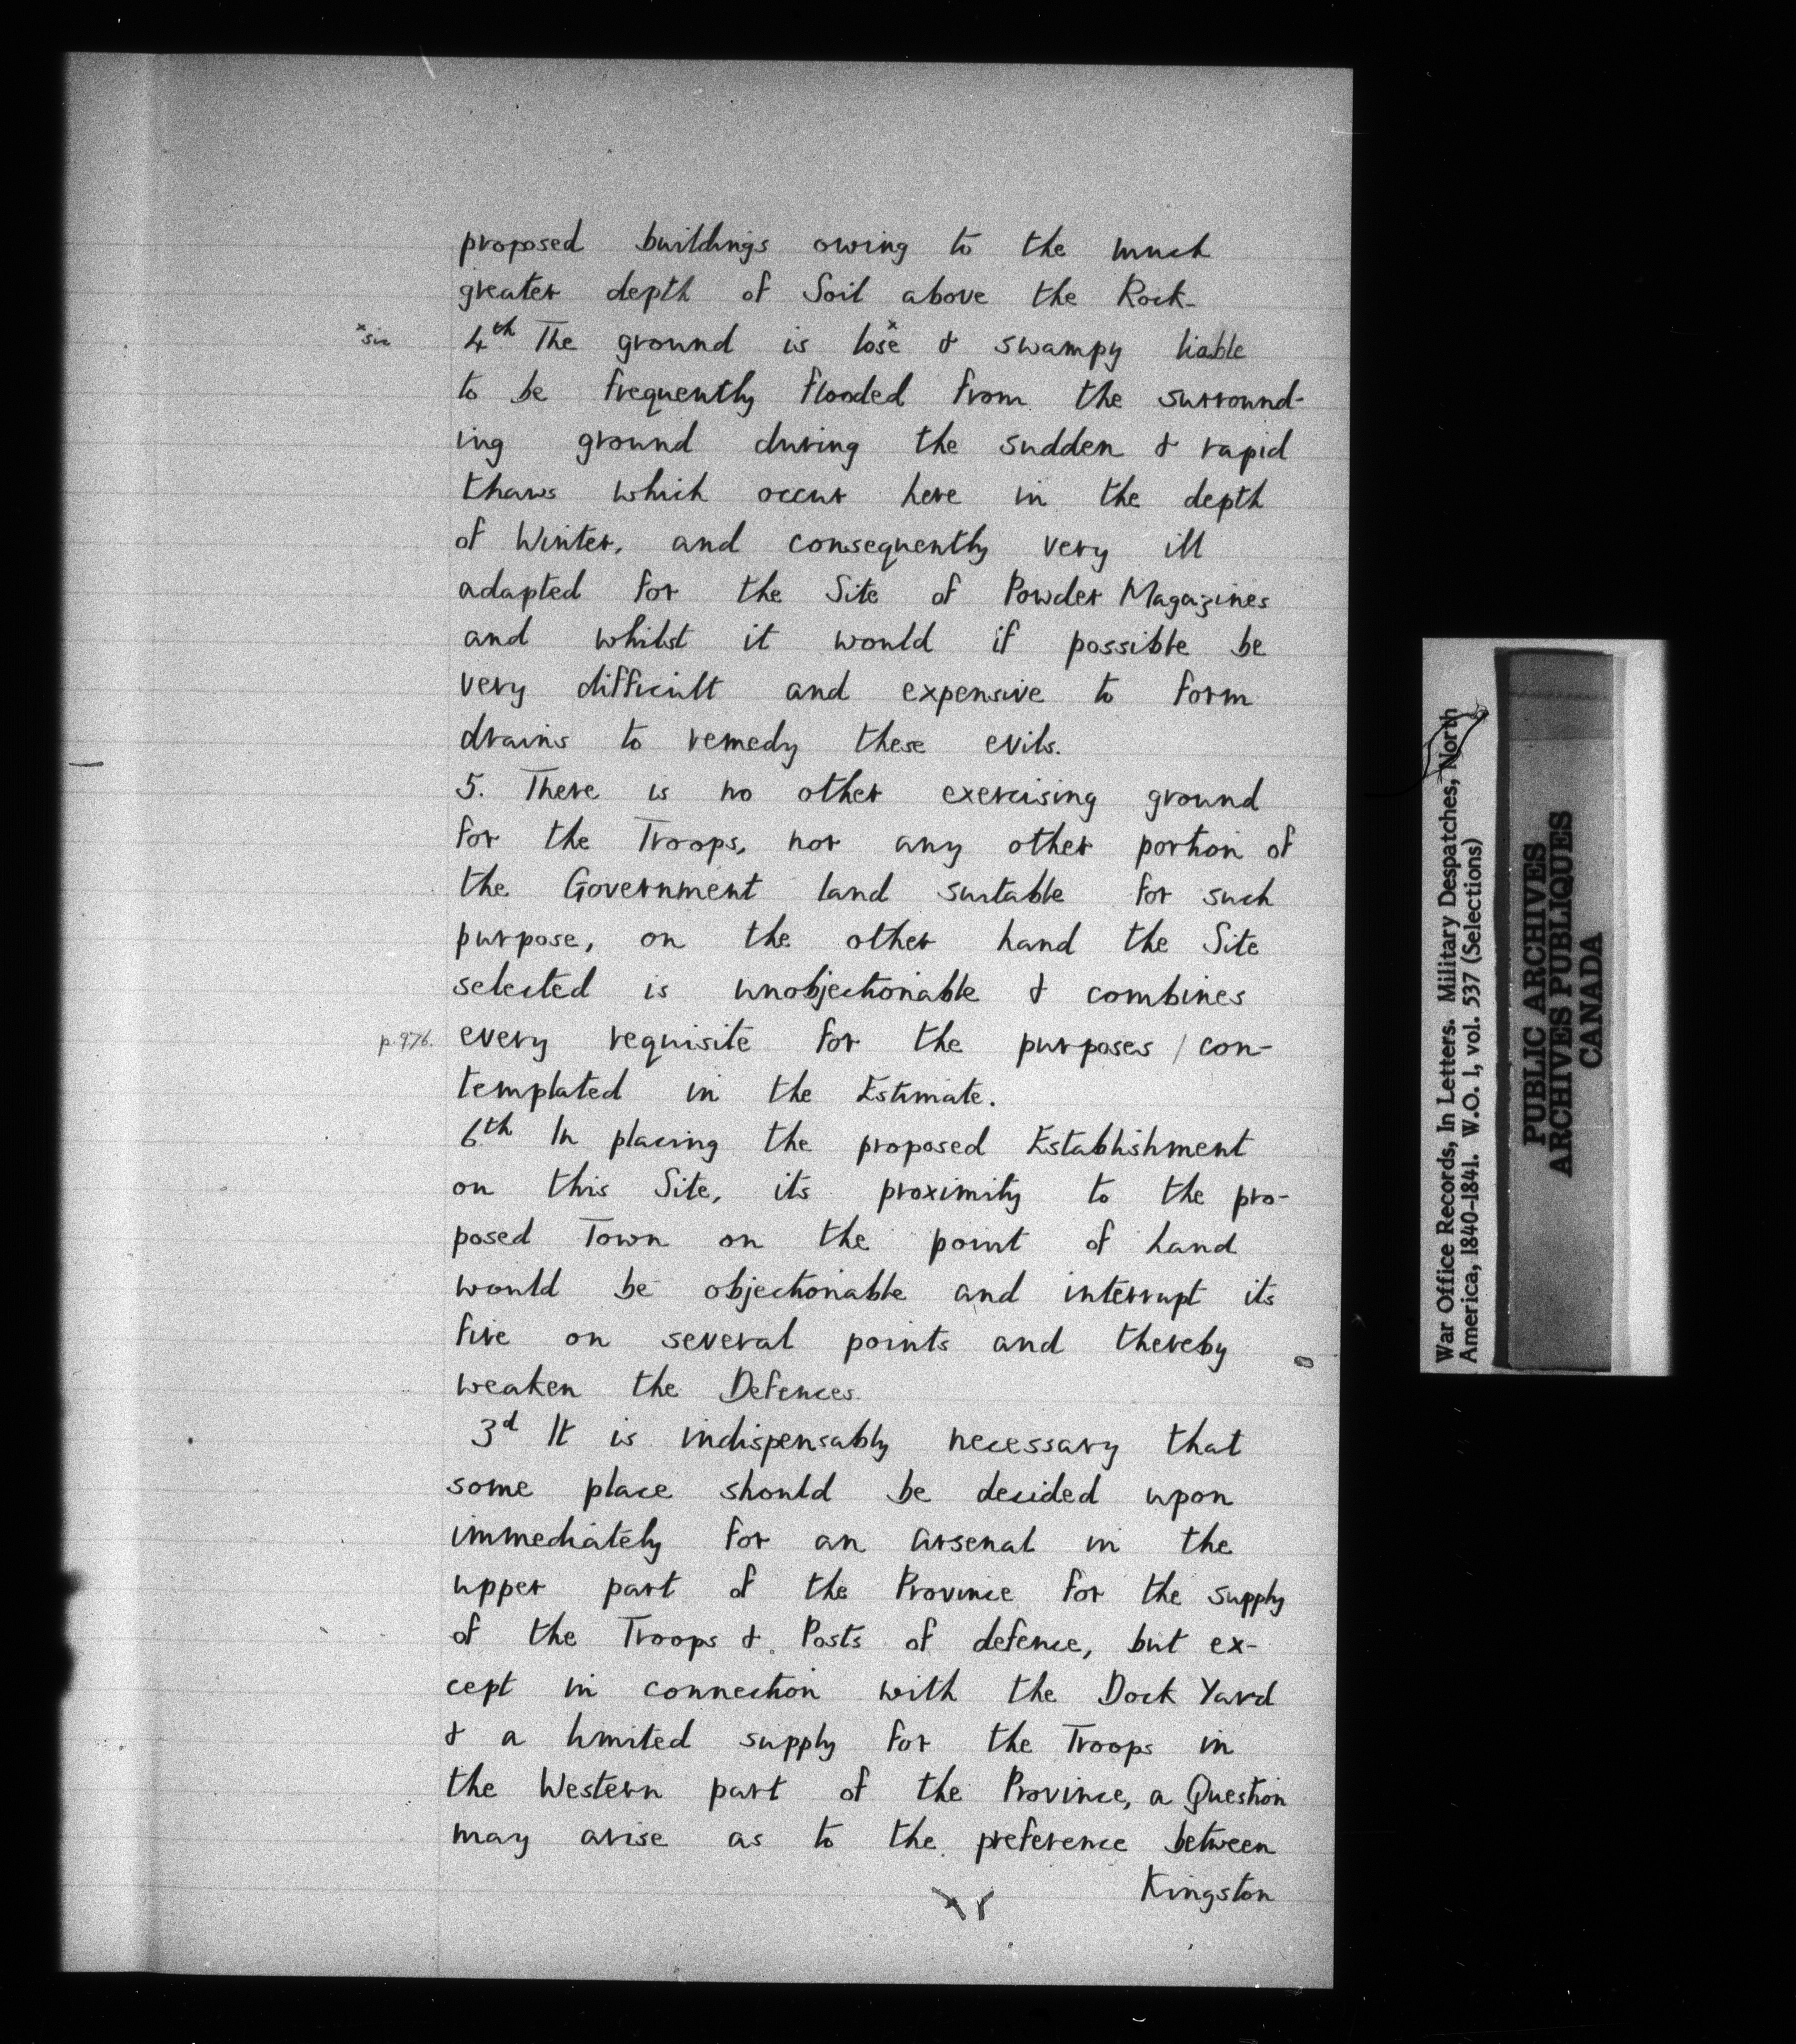 proposed buildings owing to the much
greater depth of Soil above the Rock-
xsic 4th The ground is losex & swampy liable
to be frequently flooded from the surround-
ing ground during the sudden & rapid
thaws which occur here in the depth
of Winter, and consequently very ill
adapted for the Site of Powder Magazines
and whilst it would if possible be
very difficult and expensive to form
drains to remedy these evils.
5. There is no other exercising ground
for the Troops, nor any other portion of
the Government land suitable for such
purpose, on the other hand the Site
selected is unobjectionable & combines
p.976. every requisite for the purposes / con-
templated in the Estimate.
6th In placing the proposed Establishment
on this Site, its proximity to the pro-
posed Town on the point of hand
would be objectionable and interrupt its
fire on several points and thereby
weaken the Defences.
3d It is indispensably necessary that
some place should be decided upon
immediately for an Arsenal in the
upper part of the Province for the supply
of the Troops & Posts of defence, but ex-
cept in connection with the Dock Yard
& a limited supply for the Troops in
the Western part of the Province, a Question
may arise as to the preference between
Kingston
War Office Records, In Letters. Military Despatches, North
America, 1840-1841. W.O. 1, vol. 537 (Selections)
PUBLIC ARCHIVES
ARCHIVES PUBLIQUES
CANADA